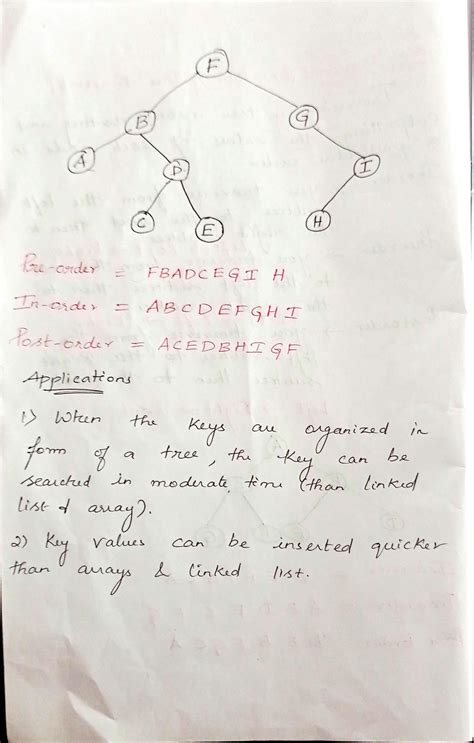 F
B
G
A
D
I
C
E
H
Pre-order = FBADCEGI H
In-order = ABCDEFGHI
Post-order = ACEDBHIGF
Applications
1) When the keys are organized in
form of a tree, the key can be
searched in moderate time (than linked
list & array).
2) Key values can be inserted quicker
than arrays & linked list.